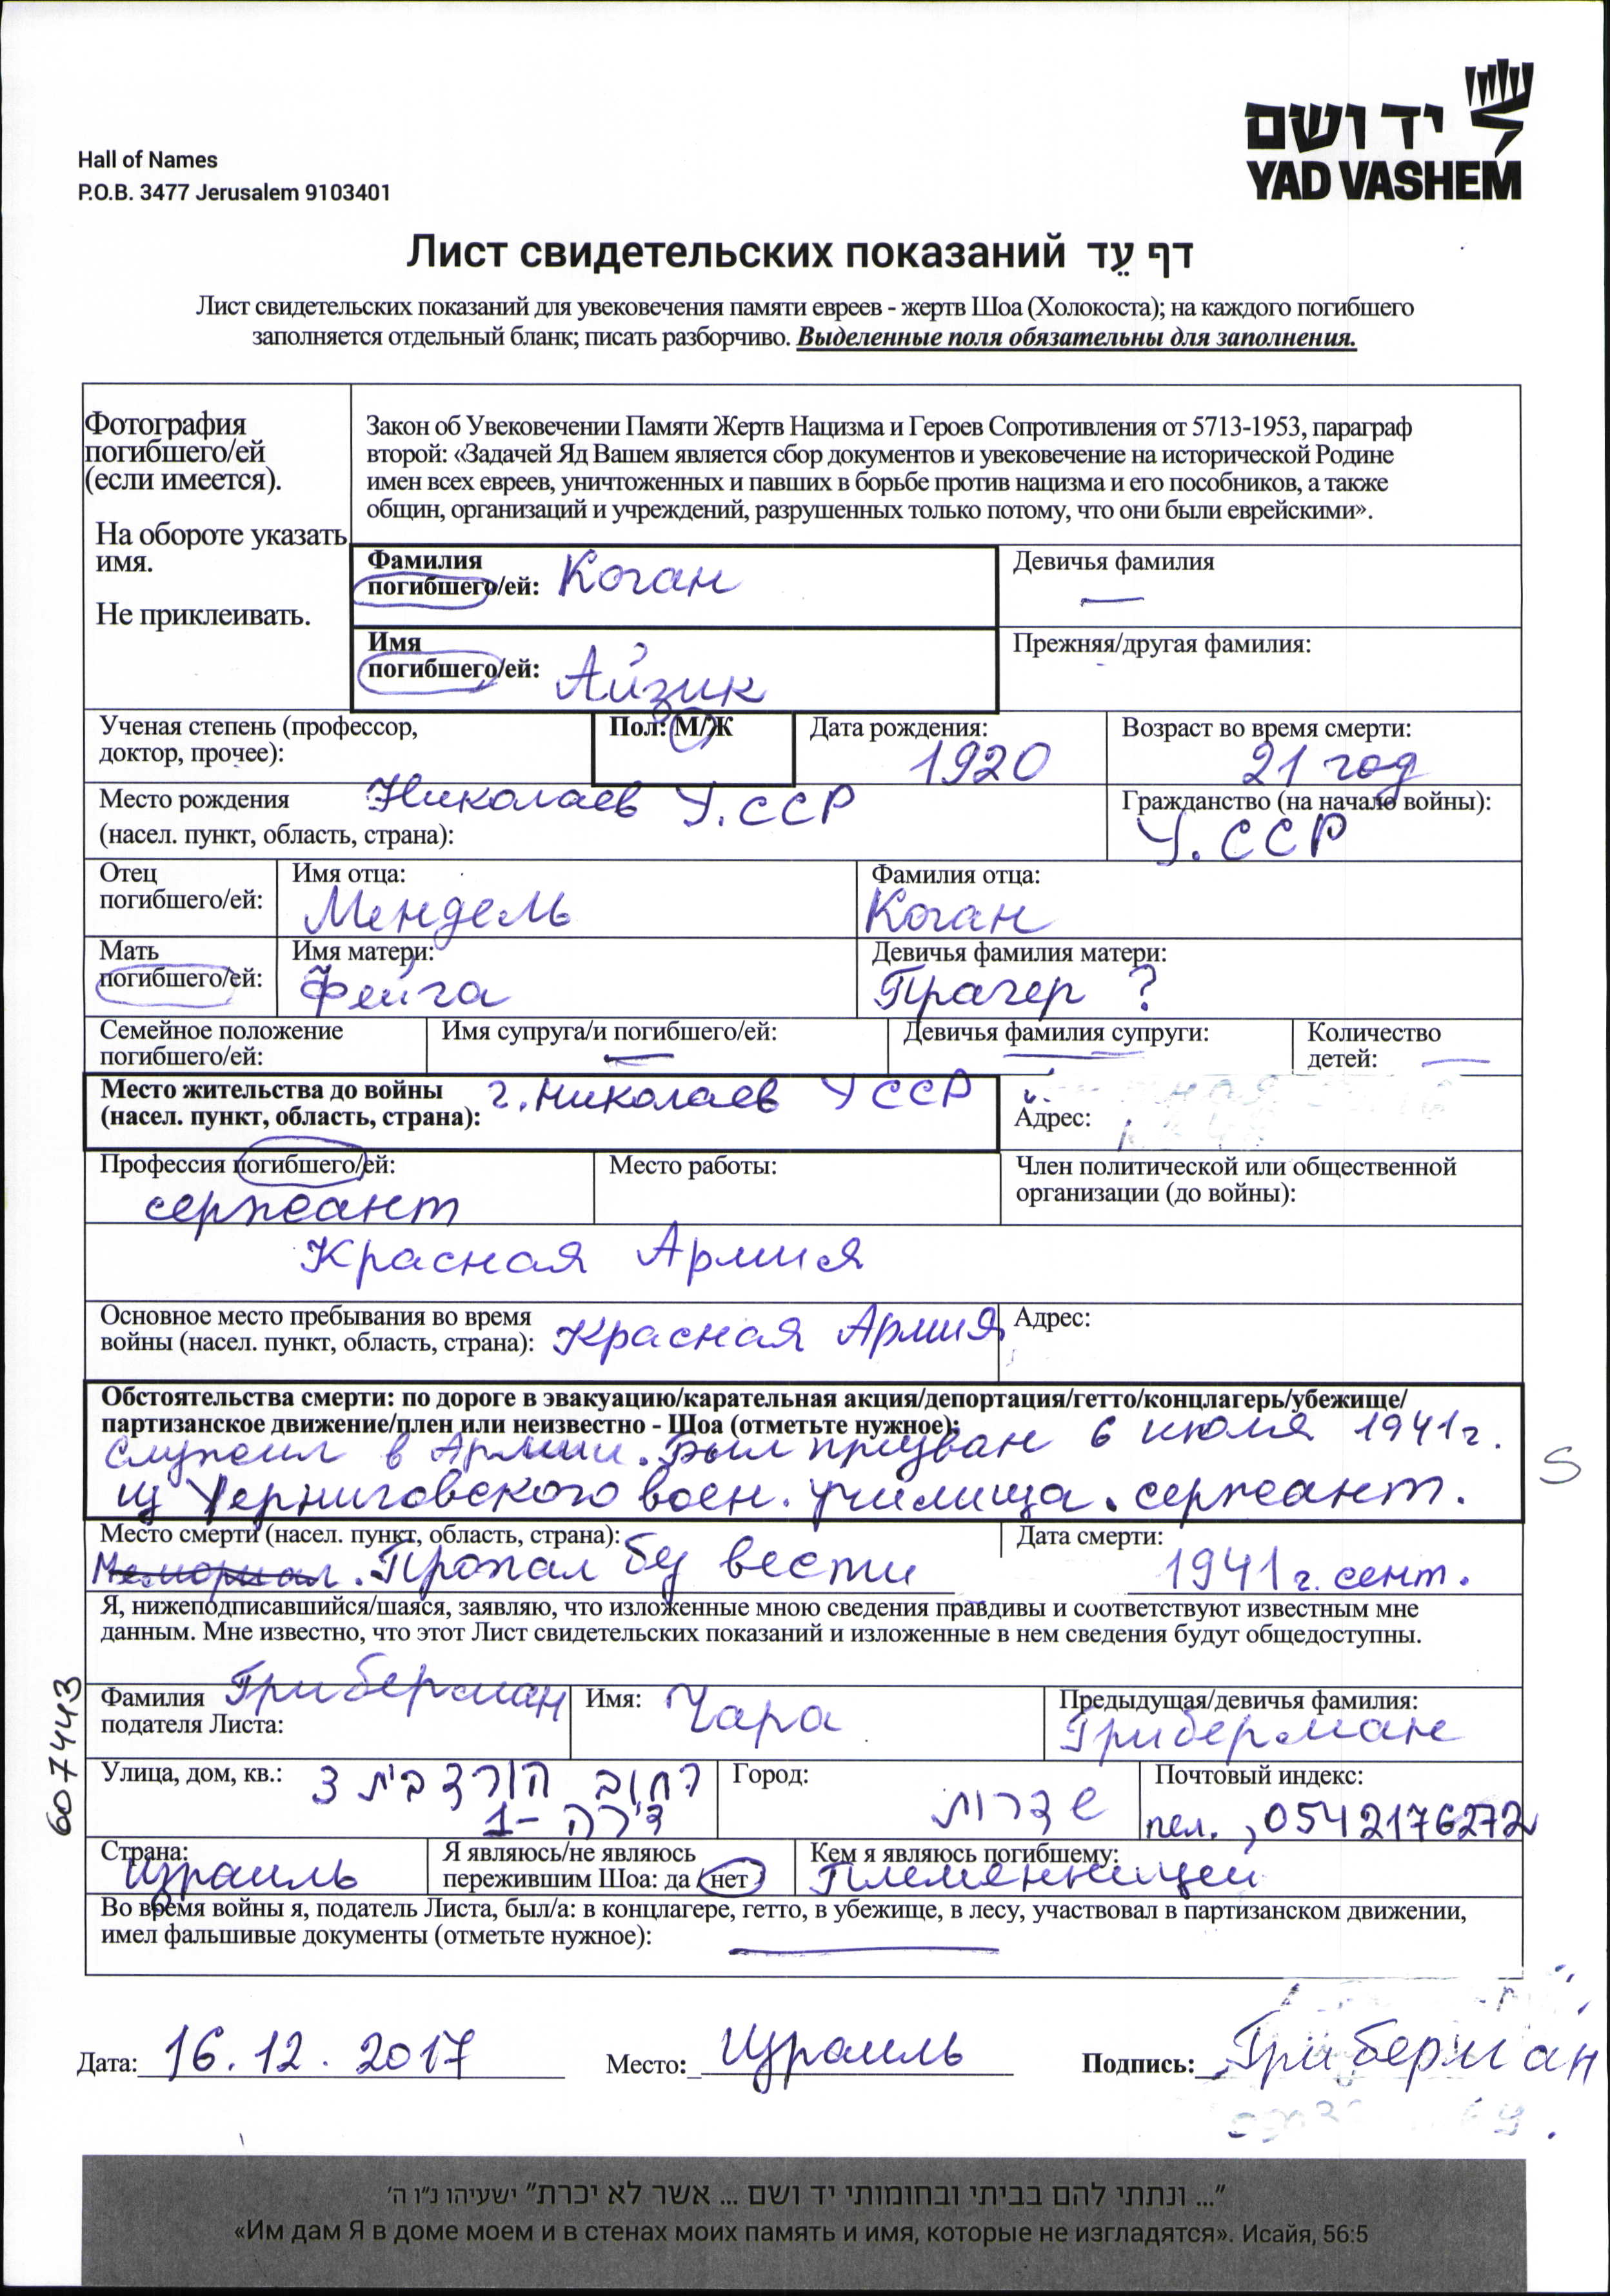 יד ושם
YAD VASHEM
Hall of Names
P.O.B. 3477 Jerusalem 9103401
Лист свидетельских показаний דף עֵד
Лист свидетельских показаний для увековечения памяти евреев - жертв Шоа (Холокоста); на каждого погибшего
заполняется отдельный бланк; писать разборчиво. Выделенные поля обязательны для заполнения.
Фотография
погибшего/ей
(если имеется).
На обороте указать
имя.
Не приклеивать.
Закон об Увековечении Памяти Жертв Нацизма и Героев Сопротивления от 5713-1953, параграф
второй: «Задачей Яд Вашем является сбор документов и увековечение на исторической Родине
имен всех евреев, уничтоженных и павших в борьбе против нацизма и его пособников, а также
общин, организаций и учреждений, разрушенных только потому, что они были еврейскими».
Фамилия
погибшего/ей: Коган
Девичья фамилия
—
Имя
погибшего/ей: Айзик
Прежняя/другая фамилия:
Ученая степень (профессор,
доктор, прочее):
Пол: М/Ж
Дата рождения:
1920
Возраст во время смерти:
21 год
Место рождения Николаев У.ССР
(насел. пункт, область, страна):
Гражданство (на начало войны):
У.ССР
Отец
погибшего/ей:
Имя отца:
Мендель
Фамилия отца:
Коган
Мать
погибшего/ей:
Имя матери:
Фейга
Девичья фамилия матери:
Прагер ?
Семейное положение
погибшего/ей:
Имя супруга/и погибшего/ей:
—
Девичья фамилия супруги:
—
Количество
детей: —
Место жительства до войны г. Николаев УССР
(насел. пункт, область, страна):
Адрес:
Профессия погибшего/ей:
сержант
Место работы:
Член политической или общественной
организации (до войны):
Красная Армия
Основное место пребывания во время
войны (насел. пункт, область, страна): Красная Армия
Адрес:
Обстоятельства смерти: по дороге в эвакуацию/карательная акция/депортация/гетто/концлагерь/убежище/
партизанское движение/плен или неизвестно - Шоа (отметьте нужное):
служил в Армии. Был призван 6 июля 1941г.
из Черниговского воен. училища. сержант.
S
Место смерти (насел. пункт, область, страна):
Мемориал. Пропал без вести
Дата смерти:
1941г. сент.
Я, нижеподписавшийся/шаяся, заявляю, что изложенные мною сведения правдивы и соответствуют известным мне
данным. Мне известно, что этот Лист свидетельских показаний и изложенные в нем сведения будут общедоступны.
Фамилия Гриберман
подателя Листа:
Имя: Чара
Предыдущая/девичья фамилия:
Гриберман
Улица, дом, кв.: רחוב הורד בית 3
דירה -1
Город:
שדרות
Почтовый индекс:
тел. , 0542176272
Страна:
Израиль
Я являюсь/не являюсь
пережившим Шоа: да / нет
Кем я являюсь погибшему:
Племенницей
Во время войны я, податель Листа, был/а: в концлагере, гетто, в убежище, в лесу, участвовал в партизанском движении,
имел фальшивые документы (отметьте нужное): —
6074443
Дата: 16.12.2017
Место: Израиль
Подпись: Гриберман
"... ונתתי להם בביתי ובחומותי יד ושם ... אשר לא יכרת" ישעיהו נ"ו ה'
«Им дам Я в доме моем и в стенах моих память и имя, которые не изгладятся». Исайя, 56:5